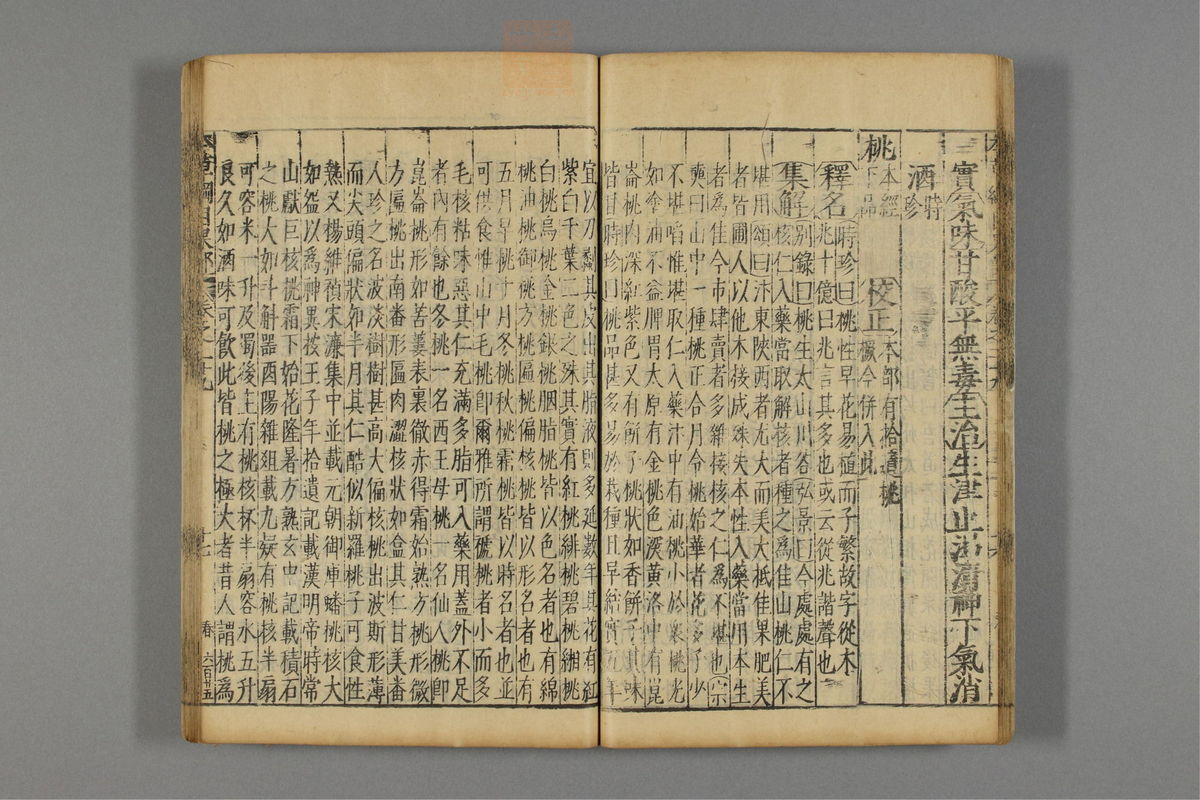 實氣味甘酸平無毒主治生津止渴清神下氣消
酒時珍
桃本經下品 校正本部有拾遺桃橛今併入此
釋名時珍曰桃性早花易植而子繁故字從木
兆十億曰兆言其多也或云從兆諧聲也
集解別錄曰桃生太山川谷弘景曰今處處有之
核仁入藥當取解核者種之爲佳山桃仁不
堪用頌曰汴東陝西者尤大而美大柢佳果肥美
者皆圃人以他木接成殊失本性入藥當用本生
者爲佳今市肆賣者多雜核核之仁爲不堪也宗
奭曰山中一種桃正合月令桃始華者花多子少
不堪啗惟堪取仁入藥汴中有油桃小於衆桃光
如塗油不益脾胃太原有金桃色深黃洛中有崑
崙桃肉深紅紫色又有餅子桃狀如香餅子其味
皆甘時珍曰桃品甚多易於栽種且早結實五年
宜以刀劙其皮出其脂液則多延數年其花有紅
紫白千葉二色之殊其實有紅桃緋桃碧桃緗桃
白桃烏桃金桃銀桃胭脂桃皆以色名者也有綿
桃油桃御桃方桃匾桃偏核桃皆以形名者也有
五月早桃十月冬桃秋桃霜桃皆以時名者也並
可供食惟山中毛桃卽爾雅所謂褫桃者小而多
毛核粘味惡其仁充滿多脂可入藥用蓋外不足
者內有餘也冬桃一名西王母桃一名仙人桃卽
崑崙桃形如苦蔞表裏徹赤得霜始熟方桃形微
方匾桃出南番形匾肉澀核狀如盒其仁甘美番
人珍之名波淡樹樹甚高大偏核桃出波斯形薄
而尖頭偏狀如半月其仁酷似新羅桃子可食性
熱又楊維禎宋濂集中並載元朝御庫蟠桃核大
如盌以爲神異按王子年拾遺記載漢明帝時常
山獻巨核桃霜下始花隆暑方熟玄中記載積石
之桃大如斗斛器酉陽雜俎載九疑有桃核半扇
可容米一升及蜀後主有桃核杯半扇容水五升
良久如酒味可飲此皆桃之極大者昔人謂桃爲
本草綱目果部 卷之二十九 春 六百廿五